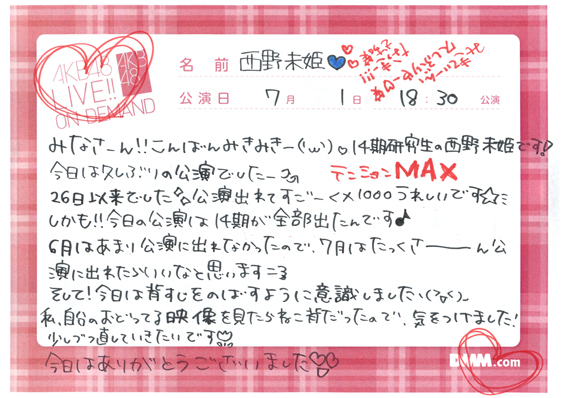 AKB48
LIVE!!
ON DEMAND
AKB
48
名 前 西野未姫💙
公演日 7月 1日 18:30 公演
みなさーん!!こんばんみきみきー(・ω・)♡14期研究生の西野未姫です!
今日は久しぶりの公演でしたー
テンションMAX
26日以来でした 公演出れてすごーく×1000うれしいです☆ミ
しかも!!今日の公演は14期が全部出たんです♪
6月はあまり公演に出れなかったので、7月はたっくさーーん公
演に出れたらいいなと思います
そして!今日は背すじをのばすように意識しました
私、自分のおどってる映像を見たらねこ背だったので、気をつけました!
少しづつ直していきたいです
今日はありがとうございました♡
DMM.com